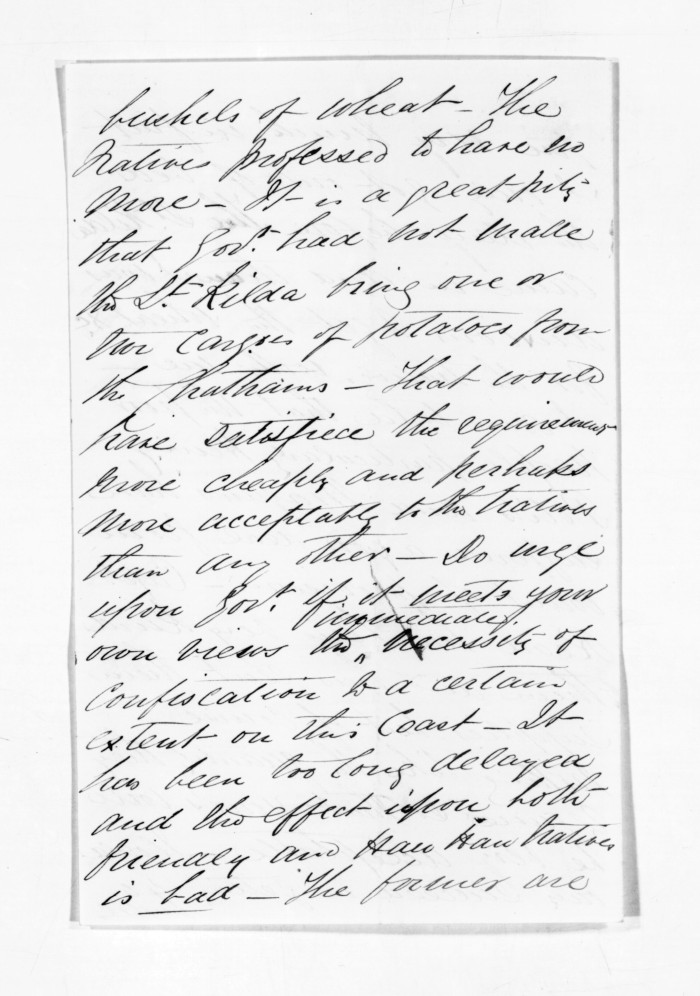 bushels of wheat - The
Natives professed to have no
more - It is a great pity
that Govt. had not made
the St Kilda bring one or
two Cargoes of potatoes from
the Chathams - That would
have satisfied the requirements
more cheaply and perhaps
more acceptably to the Natives
than any other - Do urge
upon Govt. if it meets your
immediate
own views the ^ necessity of
confiscation to a certain
extent on this Coast - It
has been too long delayed
and the effect upon both
friendly and Hau Hau Natives
is bad - The former are